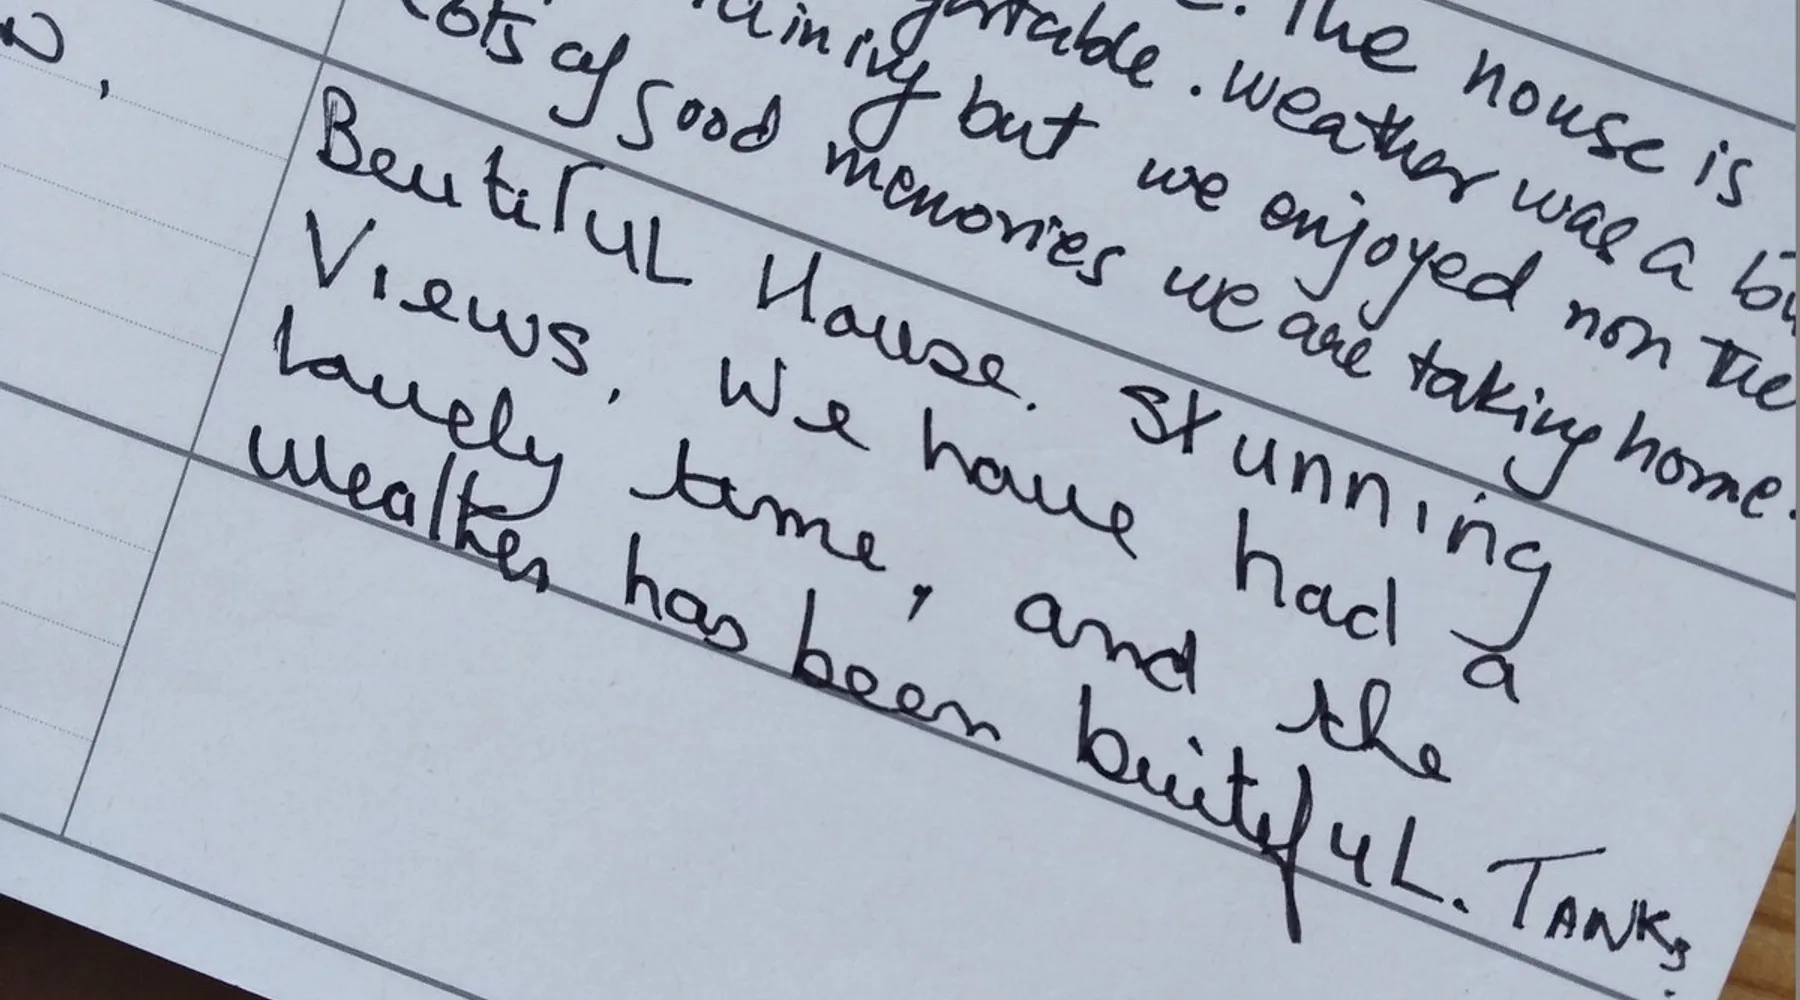 The house is
table. weather was a
but we enjoyed non the
Lots of good memories we are taking home.
Beutiful House. Stunning
Views. We have had a
Lovely time, and the
Weather has been buitiful. TANKS